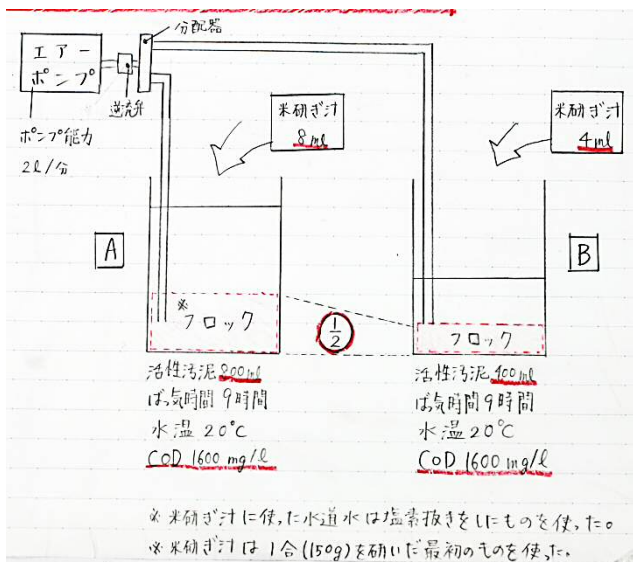 分配器
エアー
ポンプ
逆流弁
ポンプ能力
2l/分
米研ぎ汁
8ml
米研ぎ汁
4ml
A
B
※
フロック
1/2
フロック
活性汚泥800ml
ばっ気時間 9時間
水温20℃
COD 1600 mg/l
活性汚泥400ml
ばっ気時間9時間
水温20℃
COD 1600 mg/l
※米研ぎ汁に使った水道水は塩素抜きをしたものを使った。
※米研ぎ汁は1合(150g)を研いだ最初のものを使った。